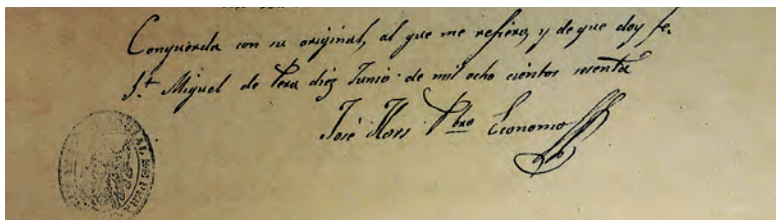 Conquerda con su original, al que me refiero, y de que doy fe.
Sn. Miguel de Pera diez Junio de mil ocho cientos sesenta
José Mars Pbro Economo